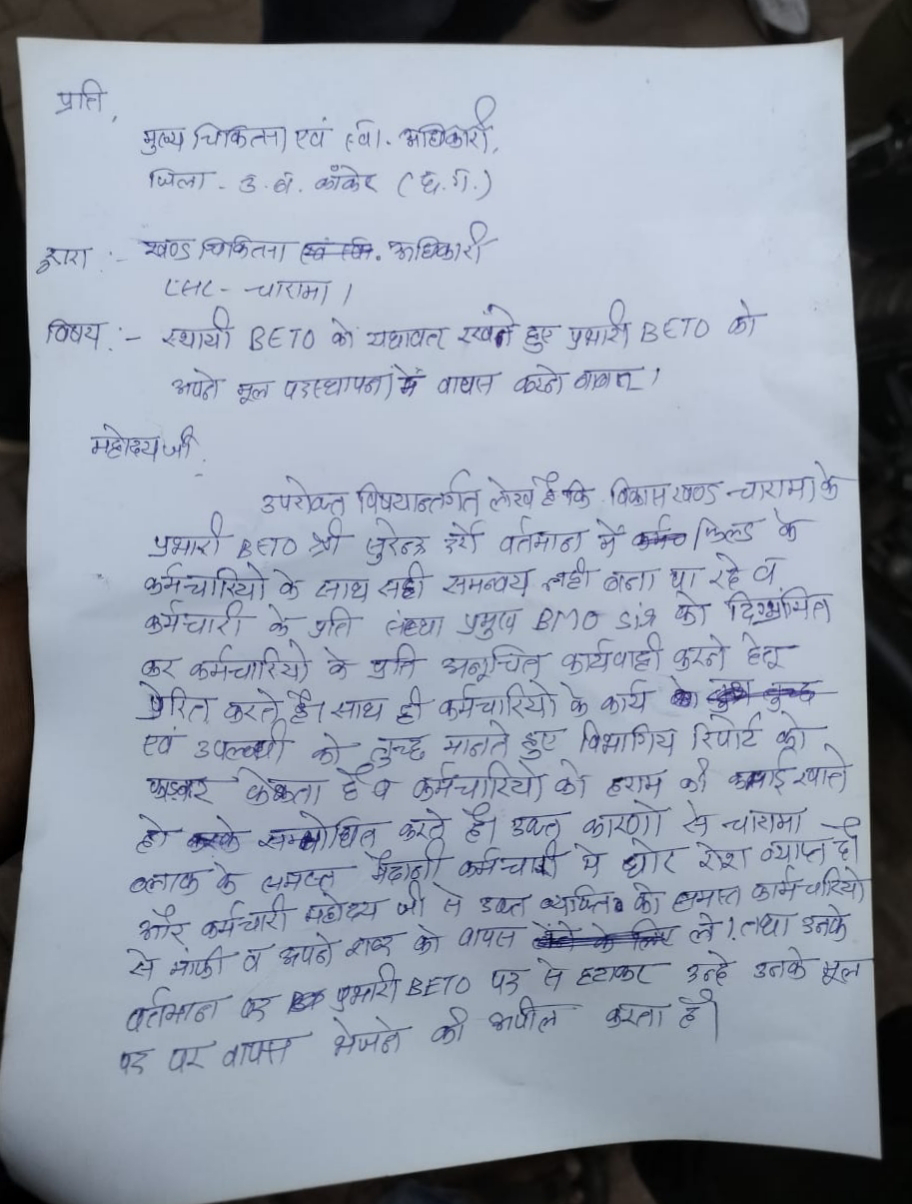 प्रति,
मुख्य चिकित्सा एवं स्वा. अधिकारी,
जिला - उ. ब. काँकेर (छ.ग.)
द्वारा :- खण्ड चिकित्सा अधिकारी
CHC - चारामा ।
विषय :- स्थायी BETO को यथावत रखते हुए प्रभारी BETO को
अपने मूल पदस्थापना में वापस करने बाबत् ।
महोदय जी,
उपरोक्त विषयान्तर्गत लेख है कि विकास खण्ड - चारामा के
प्रभारी BETO श्री सुरेन्द्र वर्तमान में फिल्ड के
कर्मचारियो के साथ सही समन्वय नही बना पा रहे व
कर्मचारी के प्रति संस्था प्रमुख BMO को दिग्भ्रमित
कर कर्मचारियो के प्रति अनूचित कार्यवाही करने हेतू
प्रेरित करते है। साथ ही कर्मचारियो के कार्य
एवं उपलब्धी को तुच्छ मानते हुए विभागिय रिपोर्ट को
फाड़कर फेकता है व कर्मचारियो को हराम की कमाई खाते
हो सम्बोधित करते है। उक्त कारणो से चारामा
ब्लाक के समस्त मैदानी कर्मचारी मे घोर रोश व्याप्त है।
और कर्मचारी महोदय जी से उक्त व्यक्ति को समस्त कर्मचारियो
से माफी व अपने शब्द को वापस ले। तथा उनके
वर्तमान पद प्रभारी BETO पद से हटाकर उन्हे उनके मूल
पद पर वापस भेजने की अपील करता है।